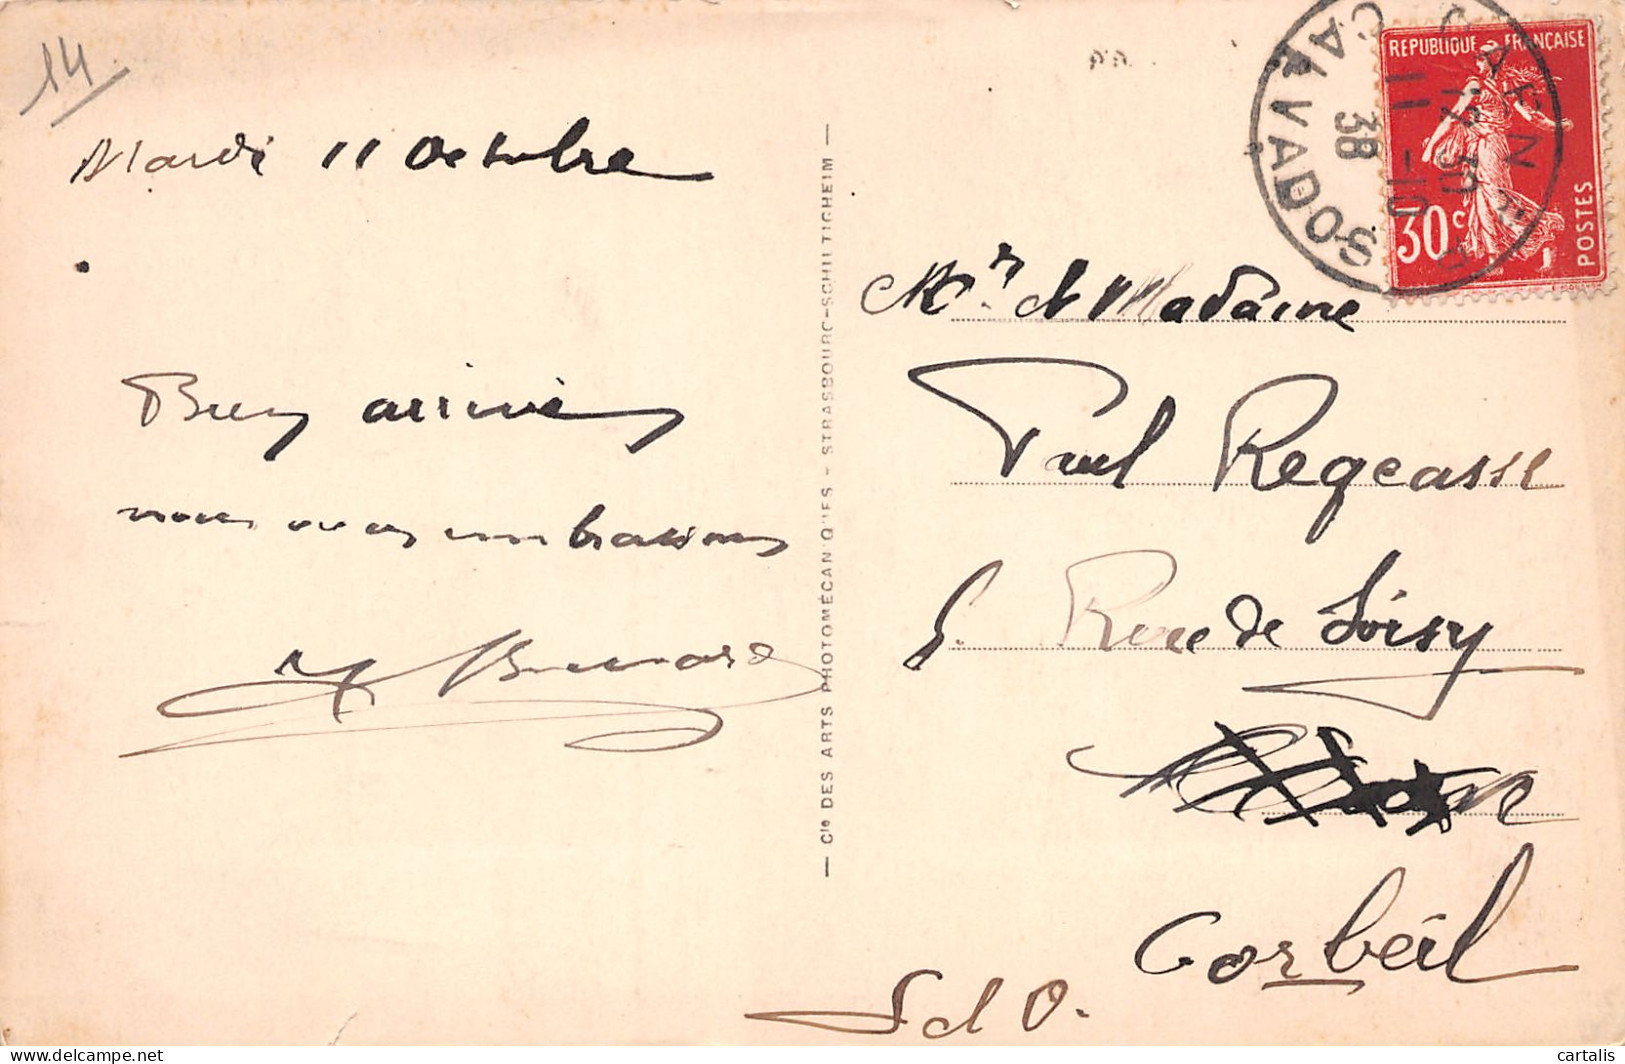 14
Mardi 11 Octobre
Bien arrivés
nous vous embrassons
Bernard
Cie DES ARTS PHOTOMÉCANIQUES - STRASBOURG-SCHILTIGHEIM
CAEN
CALVADOS
12 30
11 -10
38
REPUBLIQUE FRANÇAISE
30c
POSTES
Mr. et Madame
Paul
Rue de Soisy
Corbeil
S et O.
cartalis
delcampe.net